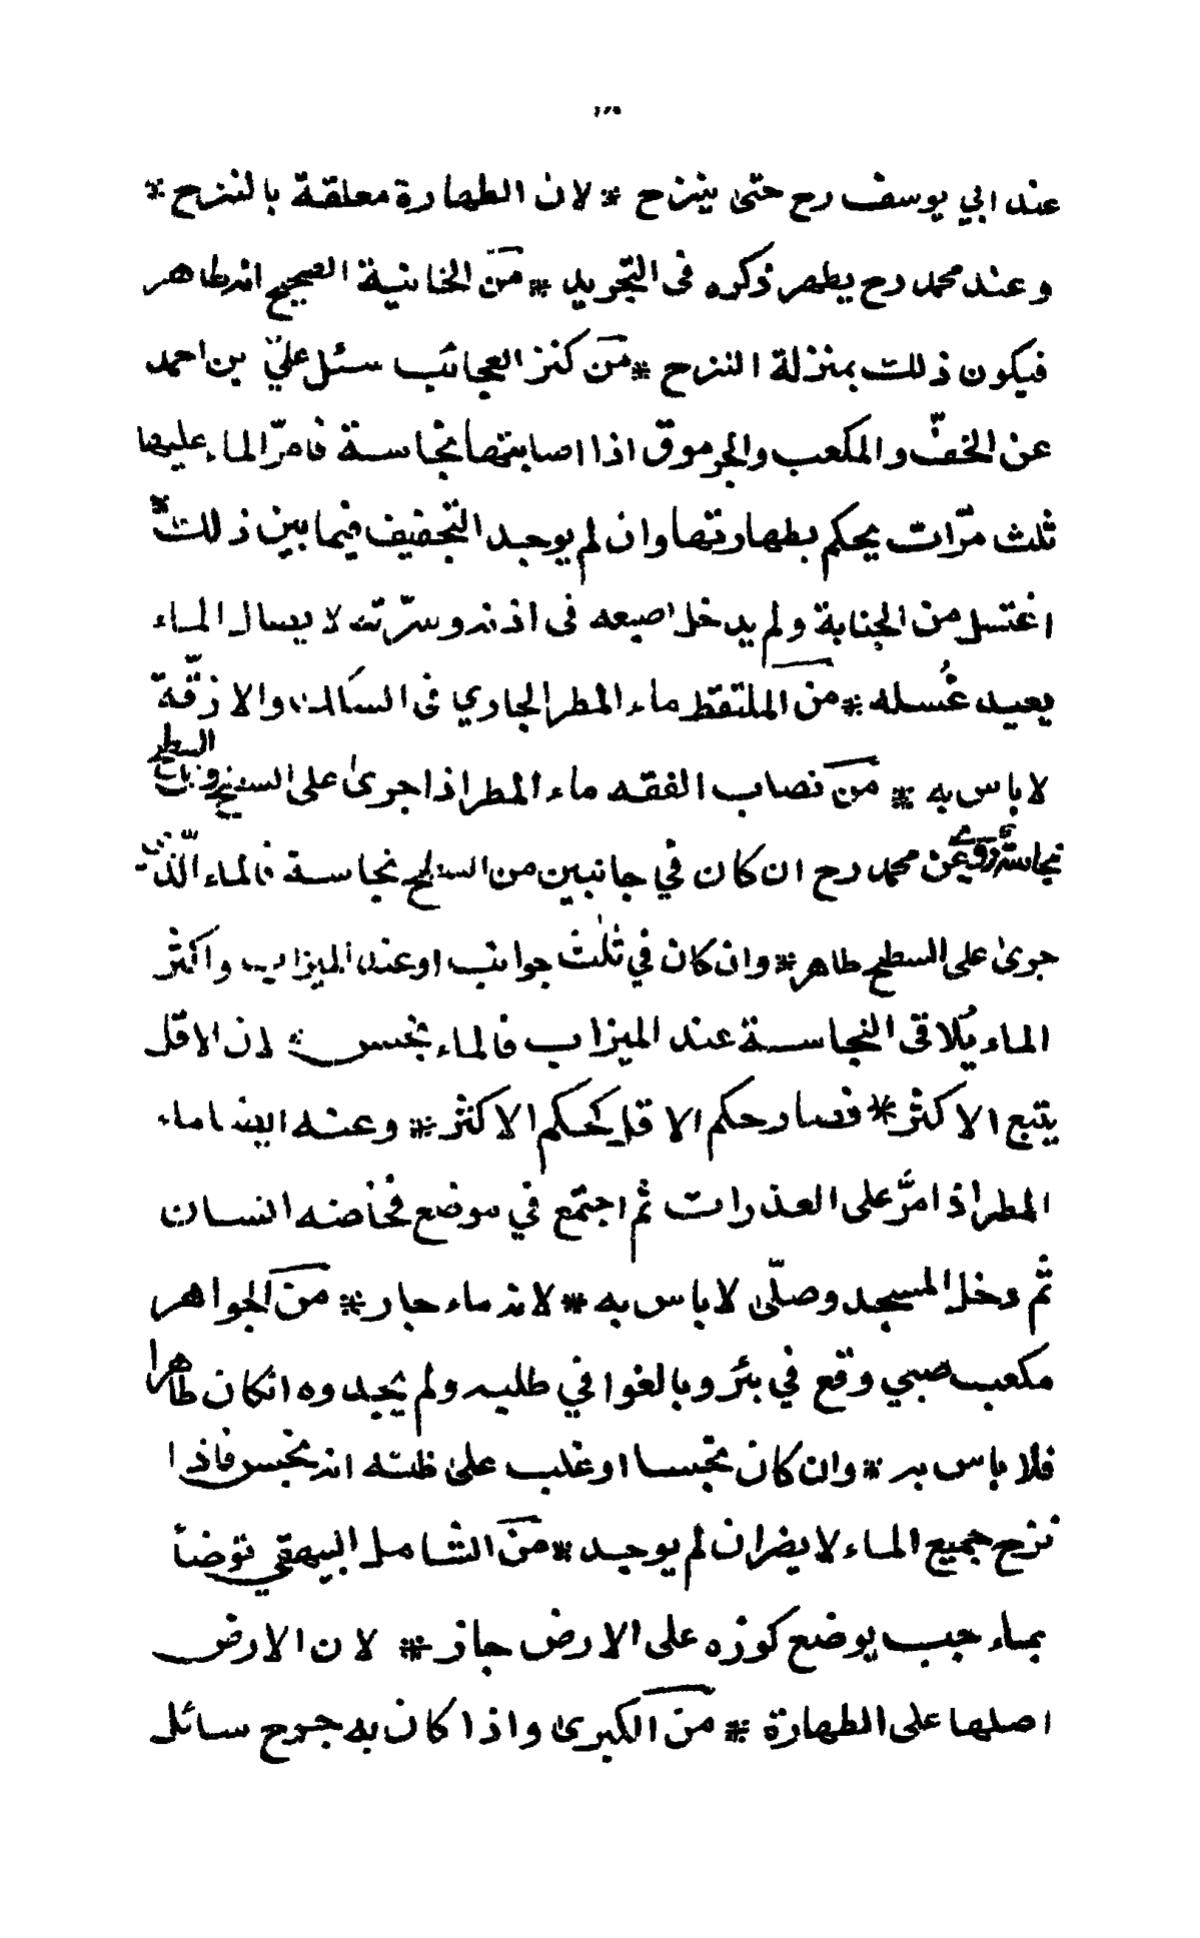 عند ابي يوسف رح حتى ينزح * لان الطهارة معلقة بالنزح *
وعند محمد رح يطهر ذكره فى التجريد * من الخانية الصحيح انه طاهر
فيكون ذلك بمنزلة النزح * من كنز العجائب سئل علي بن احمد
عن الخفّ والمكعب والجرموق اذا اصابتها نجاسة فامرّ الماء عليها
ثلث مرّات يحكم بطهارتها وان لم يوجد التجفيف فيما بين ذلك *
اغتسل من الجنابة ولم يدخل اصبعه فى اذنه وسرّته لا يسال الماء
يعيد غُسله * من الملتقط ماء المطر الجاري فى السكك والازقّة
لاباس به * من نصاب الفقه ماء المطر اذا جرىٰ على السطح وعلى السطح
نجاسة روي عن محمد رح ان كان في جانبين من السطح نجاسة فالماء الّذي
جرىٰ على السطح طاهر * وان كان في ثلٰث جوانب او عند الميزاب واكثر
الماء يُلاقى النجاسة عند الميزاب فالماء نجس * لان الاقل
يتبع الاكثر * فصار حكم الاقل كحكم الاكثر * وعنه ايضا ماء
المطر اذ امرَّ على العذرات ثم اجتمع في موضع فخاضه انسان
ثم دخل المسجد وصلّى لاباس به * لانه ماء جار * من الجواهر
مكعب صبي وقع في بئر وبالغوا في طلبه ولم يجدوه انكان طاهرا
فلا باس به * وان كان نجسا او غلب علىٰ ظنّه انه نجس فاذا
نزح جميع الماء لا يضر ان لم يوجد * من الشامل البيهقي توضأ
بماء حب يوضع كوزه على الارض جاز * لان الارض
اصلها على الطهارة * من الكبرىٰ واذا كان به جرح سائل